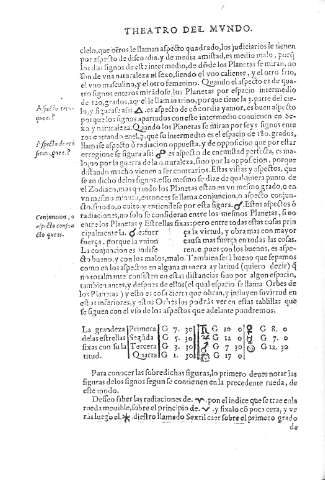 THEATRO DEL MVNDO.
cielo, que otros le llaman aspecto quadrado, los judiciarios le tienen
por aspecto de discordia, y de media amistad, es medio malo, pues
los dos signos de este intermedio, de donde los Planetas se miran, no
son de vna naturaleza ni sexo, siendo el vno caliente, y el otro frio,
el vno masculino, y el otro femenino. Quando el aspecto es de qua-
tro signos enteros mirandose los Planetas por espacio intermedio
de 120. grados, aqui el se llama trino, porque tiene la 3. parte del cie-
lo, y figurase assi △. es aspecto de concordia y amor, es buen aspecto
porque los signos apartados con este intermedio conuienen en Se-
xo y naturaleza. Quando los Planetas se miran por seys signos ente
ros que su intermedio es el espacio de 180. grados,
llamase aspecto o radiacion opposita, y de opposicion que por esta
se figura assi ☍ es aspecto de enemistad perfecta, es ma-
lo, no por la guerra de la naturaleza, sino por la opposicion, porque
distando mucho viene a ser contrarios. Estas vistas y aspectos, que
se an dicho de los signos, esso mesmo se dize de qualquiera punto de
el Zodiaco, mas quando los Planetas estan en vn mesmo grado, o en
vn mesmo minuto, entonces se llama conjuncion, o aspecto conjun-
cto, vnido, o oculto y entiendese por esta figura. ☌ Estos aspectos o
radiaciones, no solo se consideran entre los mesmos Planetas, sino
entre los Planetas y Estrellas fixas: pero entre todas estas cosas prin
cipalmente la ☌ exercita la virtud, y obra mas con mayor
fuerça, porque la vnion causa mas fuerça en todas las cosas.
La conjuncion es indife rente pues con los buenos, es aspe-
cto bueno, y con los malos, malo. Tambien sera bueno que sepamos
como en los aspectos en alguna manera ay latitud (quiero dezir) q̃
no totalmente consisten en estas distancias sino por algun espacio,
tambien antes, y despues de ellos (el qual espacio se llama Orbes de
los Planetas) y esto es assi cierto que obran, y influyen su virtud en
estas interiores, y estos Orbes los podras ver en estas tablillas que
se siguen con el vso de los aspectos que adelante pundremos.
Aspecto trino
que es?
Conjuncion, o
aspecto conjun
cto que es.
La grandeza Primera G 7. 30 ♄ G 10 0 ♀ G 8. 0
de las estrellas Segũda G 5. 30 ♃ G 12 0 ☿ G 7. 0
fixas con su la Tercera G 3. 30 ♂ G 7 30 ☾ G 12. 30
titud. Quarta G 1. 30 ☉ G 17 0
Para conocer las sobredichas figuras, lo primero deues notar las
figuras de los signos segun se contienen en la precedente rueda, de
este modo.
Deseo saber las radiaciones de. ♈. pon el indice que se trae en la
rueda mouible, sobre el principio de. ♈. y fixalo cõ poca cera, y ve
ras luego el. ✶ diestro llamado Sextil caer sobre el primero grado
de